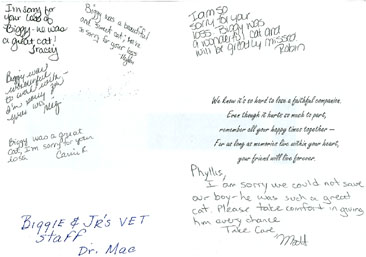 I'm sorry for
your loss of
Biggy - he was
a great cat!
Tracey
Biggy was a beautiful
and sweet cat. I'm
so sorry for your loss
I am so
sorry for your
loss. Biggy was
a wonderful cat and
will be greatly missed.
Robin
Biggy was
wonderful
to work with -
I'm sorry for
your loss
Meg
Biggy was a great
cat, I'm sorry for your
loss. Carin R.
We know it's so hard to lose a faithful companion.
Even though it hurts so much to part,
remember all your happy times together —
For as long as memories live within your heart,
your friend will live forever.
Phyllis,
I am sorry we could not save
our boy - he was such a great
cat. Please take comfort in giving
him every chance
Take Care
Matt
BIGGIE & JR'S VET
Staff
Dr. Mac